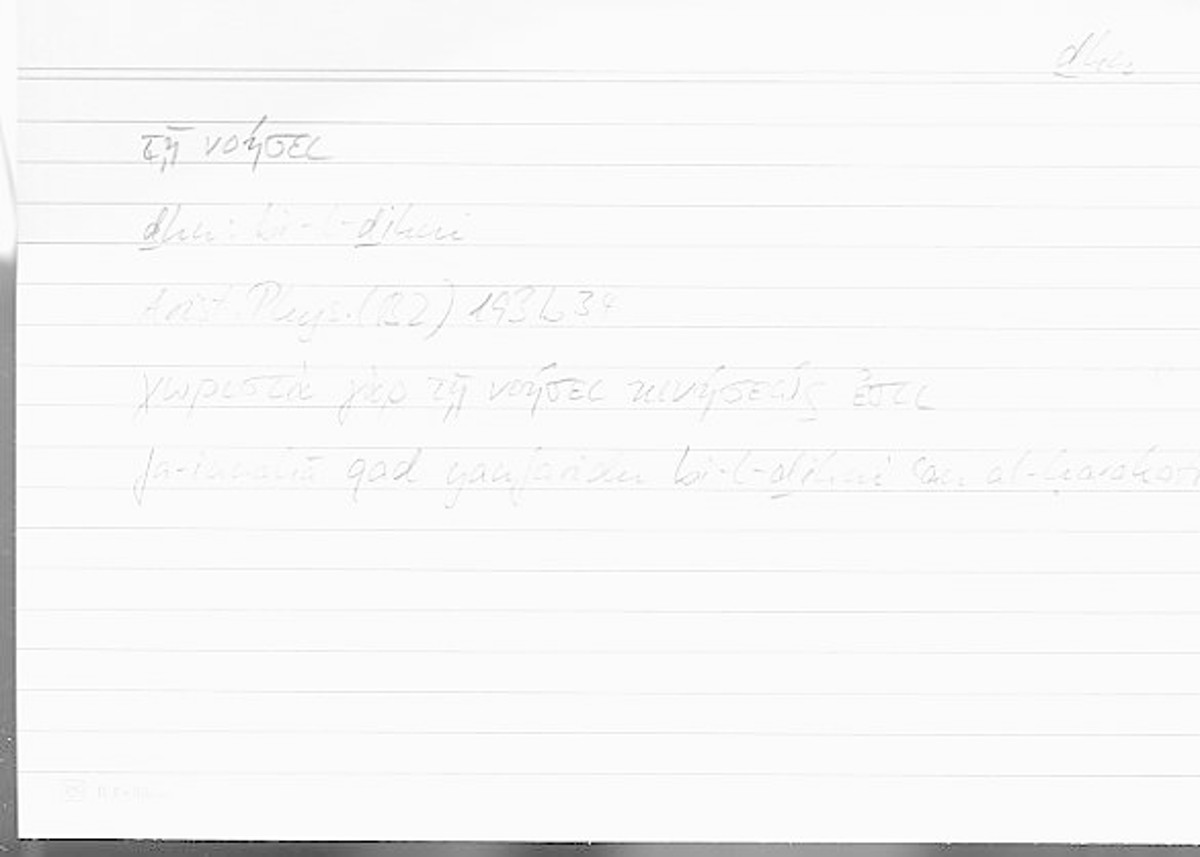 ḏhn
τῇ νοήσει
ḏhn: bi-l-ḏihni
Arist. Phys. (B2) 193b34
χωριστὰ γὰρ τῇ νοήσει κινήσεώς ἐστι
fa-innahā qad yanfaridu bi-l-ḏihni ʿan al-ḥarakati